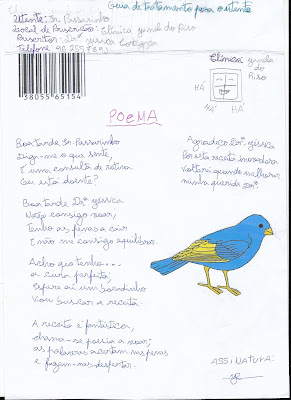 Guia de tratamento para o utente
Utente: Sr. Passarinho
Local de Prescrição: Clínica gendo do Riso
Dra. Jéssica
Telefone: 96 2557891
38055765154
Clínica
do
Riso
HÁ
HÁ
HÁ
POEMA
Boa tarde Sr. Passarinho
Diga-me o que sente,
É uma consulta de rotina
Ou está doente?
Boa tarde Drª Jéssica
Não consigo voar,
Tenho as penas a cair
E não me consigo equilibrar.
Acho que tenho...
a cura perfeita,
Espere aí um bocadinho
Vou buscar a receita.
A receita é fantástica,
chama-se poesia a voar;
as palavras acertam nas penas
e fazem-nas despertar.
Agradeço Drª Jéssica
Por esta receita inovadora
Voltarei quando melhorar
minha querida Drª.
ASSINATURA: